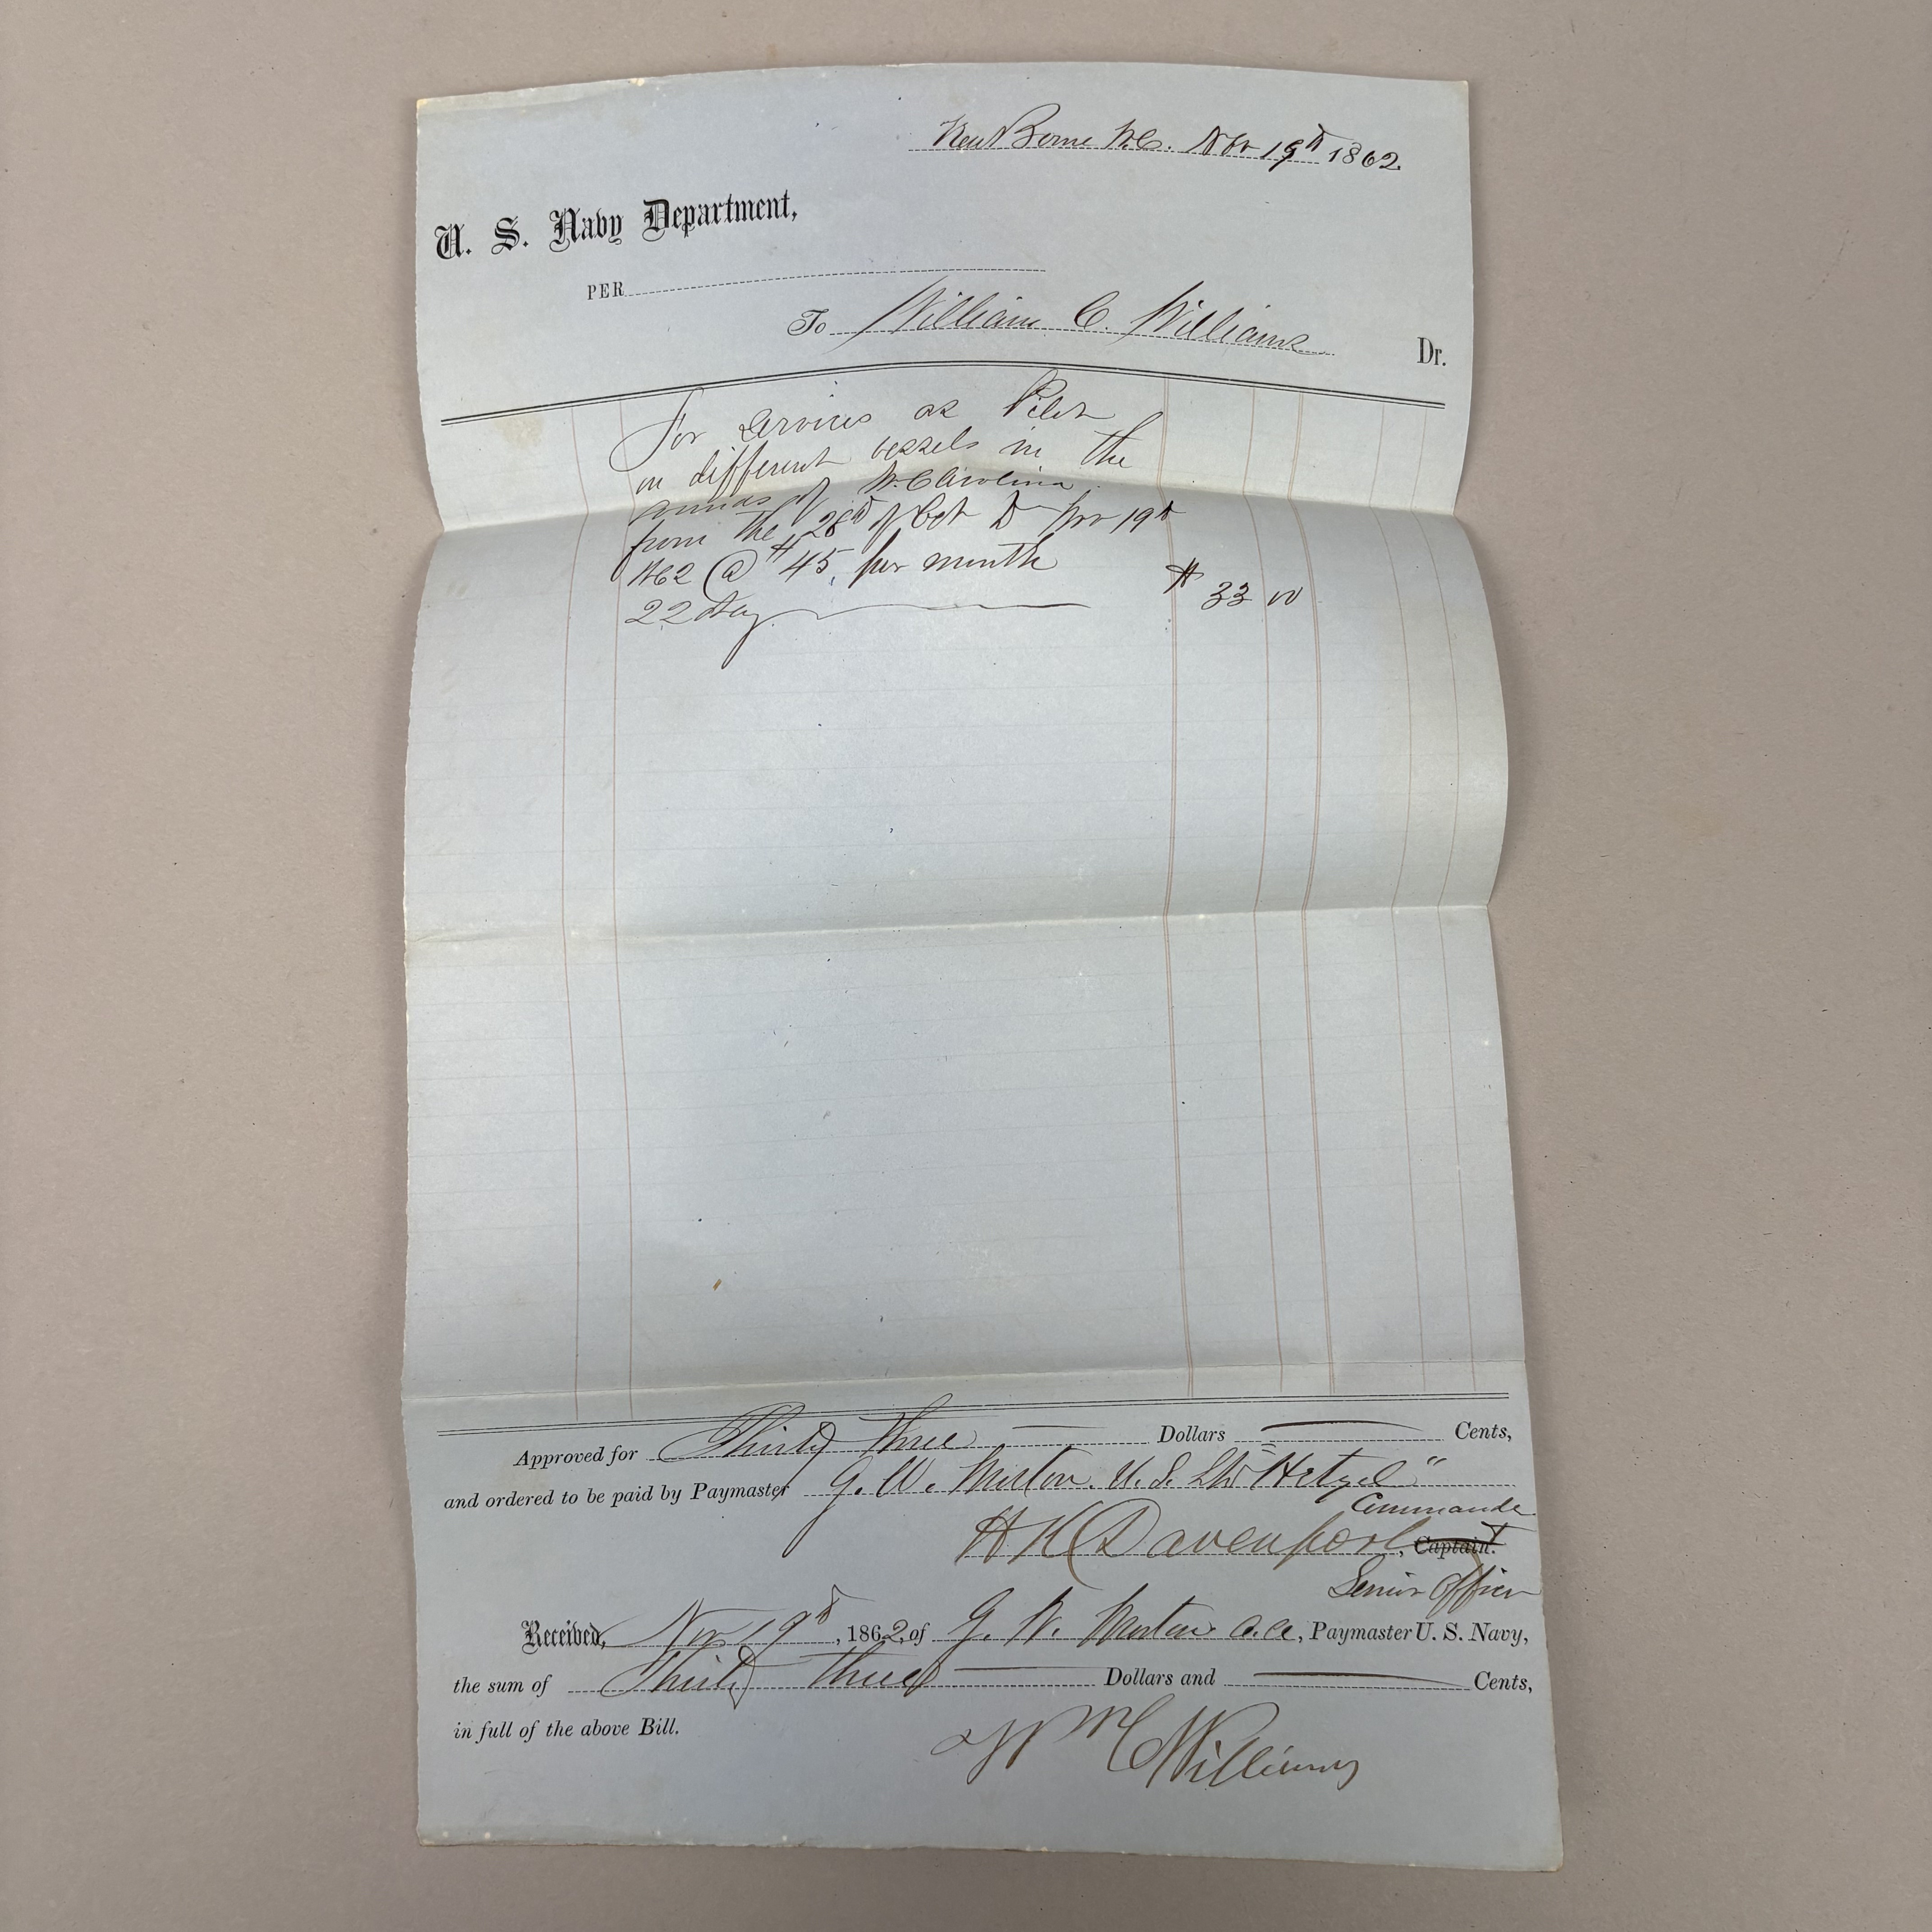 New Berne N.C. Nov 19th 1862
U. S. Navy Department,
PER
To William C. Williams Dr.
For services as Pilot
on different vessels in the
of N. Carolina
from the 28th of Oct to Nov 19th
1862 @ $45, per month
22 days $ 33 00
Approved for Thirty three Dollars Cents,
and ordered to be paid by Paymaster G. W. U. S. Str "Hetzel"
Commander
H K Davenport, Captain.
Senior Officer
Received, Nov 19th, 1862, of G. W. a.a., Paymaster U. S. Navy,
the sum of Thirty three Dollars and Cents,
in full of the above Bill.
Wm C Williams